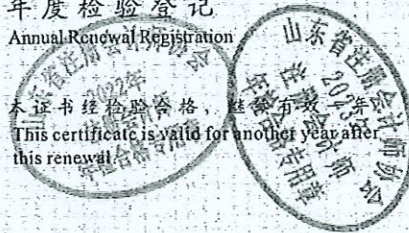 年度检验登记
Annual Renewal Registration
本证书经检验合格，继续有效一年。
This certificate is valid for another year after
this renewal.
山东省注册会计师协会
2022年
年检合格专用章
山东省注册会计师协会
2023年
注册会计师
年检合格专用章